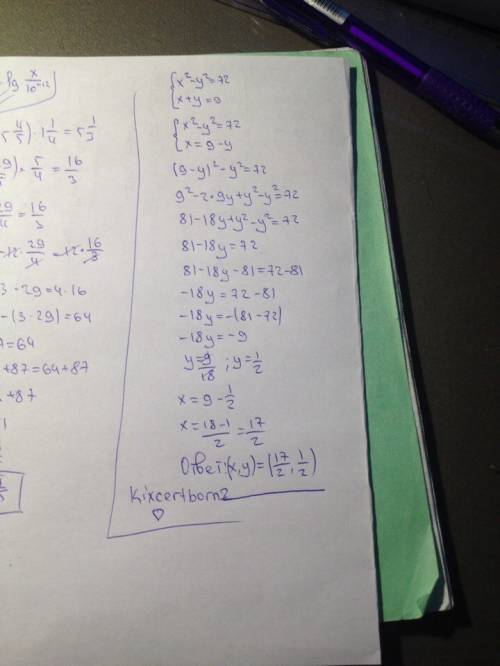 lg x/10⁻¹²
5 4/5) · 1 1/4 = 5 1/3
) · 5/4 = 16/3
29/4 = 16/3
-12 · 29/4 = 12 · 16/3
3 · 29 = 4 · 16
-(3 · 29) = 64
= 64
+ 87 = 64 + 87
+ 87
{ x² - y² = 72
x + y = 9
{ x² - y² = 72
x = 9 - y
(9 - y)² - y² = 72
9² - 2 * 9y + y² - y² = 72
81 - 18y + y² - y² = 72
81 - 18y = 72
81 - 18y - 81 = 72 - 81
-18y = 72 - 81
-18y = -(81 - 72)
-18y = -9
y = 9/18 ; y = 1/2
x = 9 - 1/2
x = 18 - 1/2 = 17/2
Ответ: (x, y) = (17/2, 1/2)
Kixcertborn2